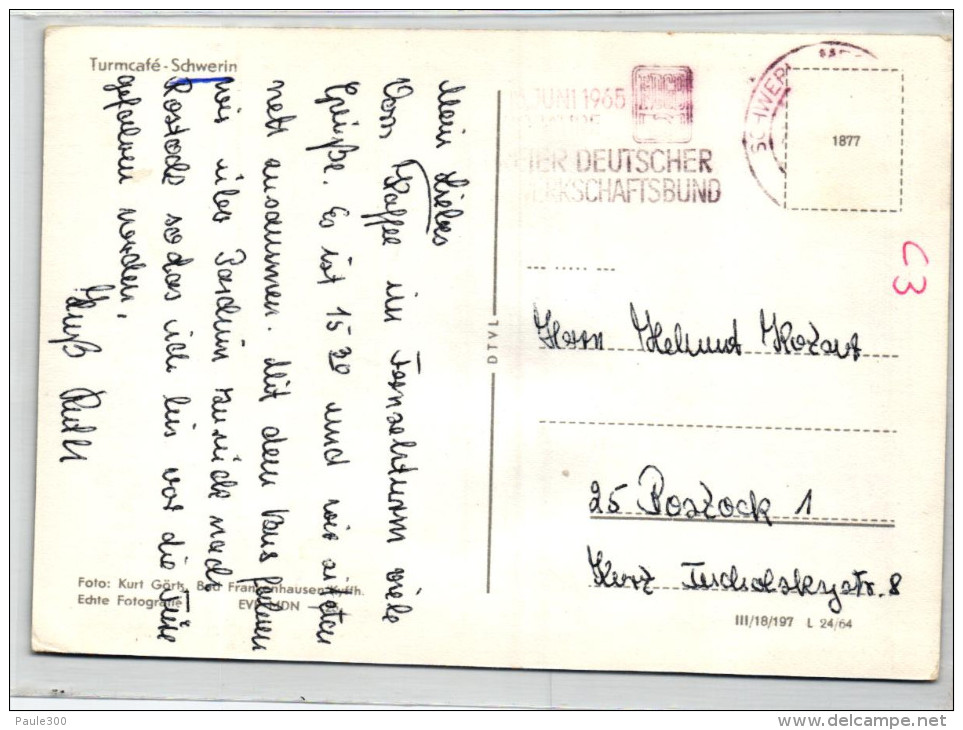 Turmcafé - Schwerin
Mein Liebes
Vom Kaffee im Fernsehturm viele
Grüße. Es ist 15 30 und wir sitzen
nett zusammen. Mit dem Bus fahren
wir über Parchim zurück nach
Rostock sodas ich bis vor die Türe
gefahren werden.
Gruß Ruth
Foto: Kurt Görk, Bad Frankenhausen Kyffh.
Echte Fotografie EVP MDN
DTVL
JUNI 1965
DEUTSCHER
SCHAFTSBUND
SCHWER
1877
C3
Herrn Helmut Kozart
25 Rostock 1
Kurz Tucholskystr. 8
III/18/197 L 24/64
Paule300